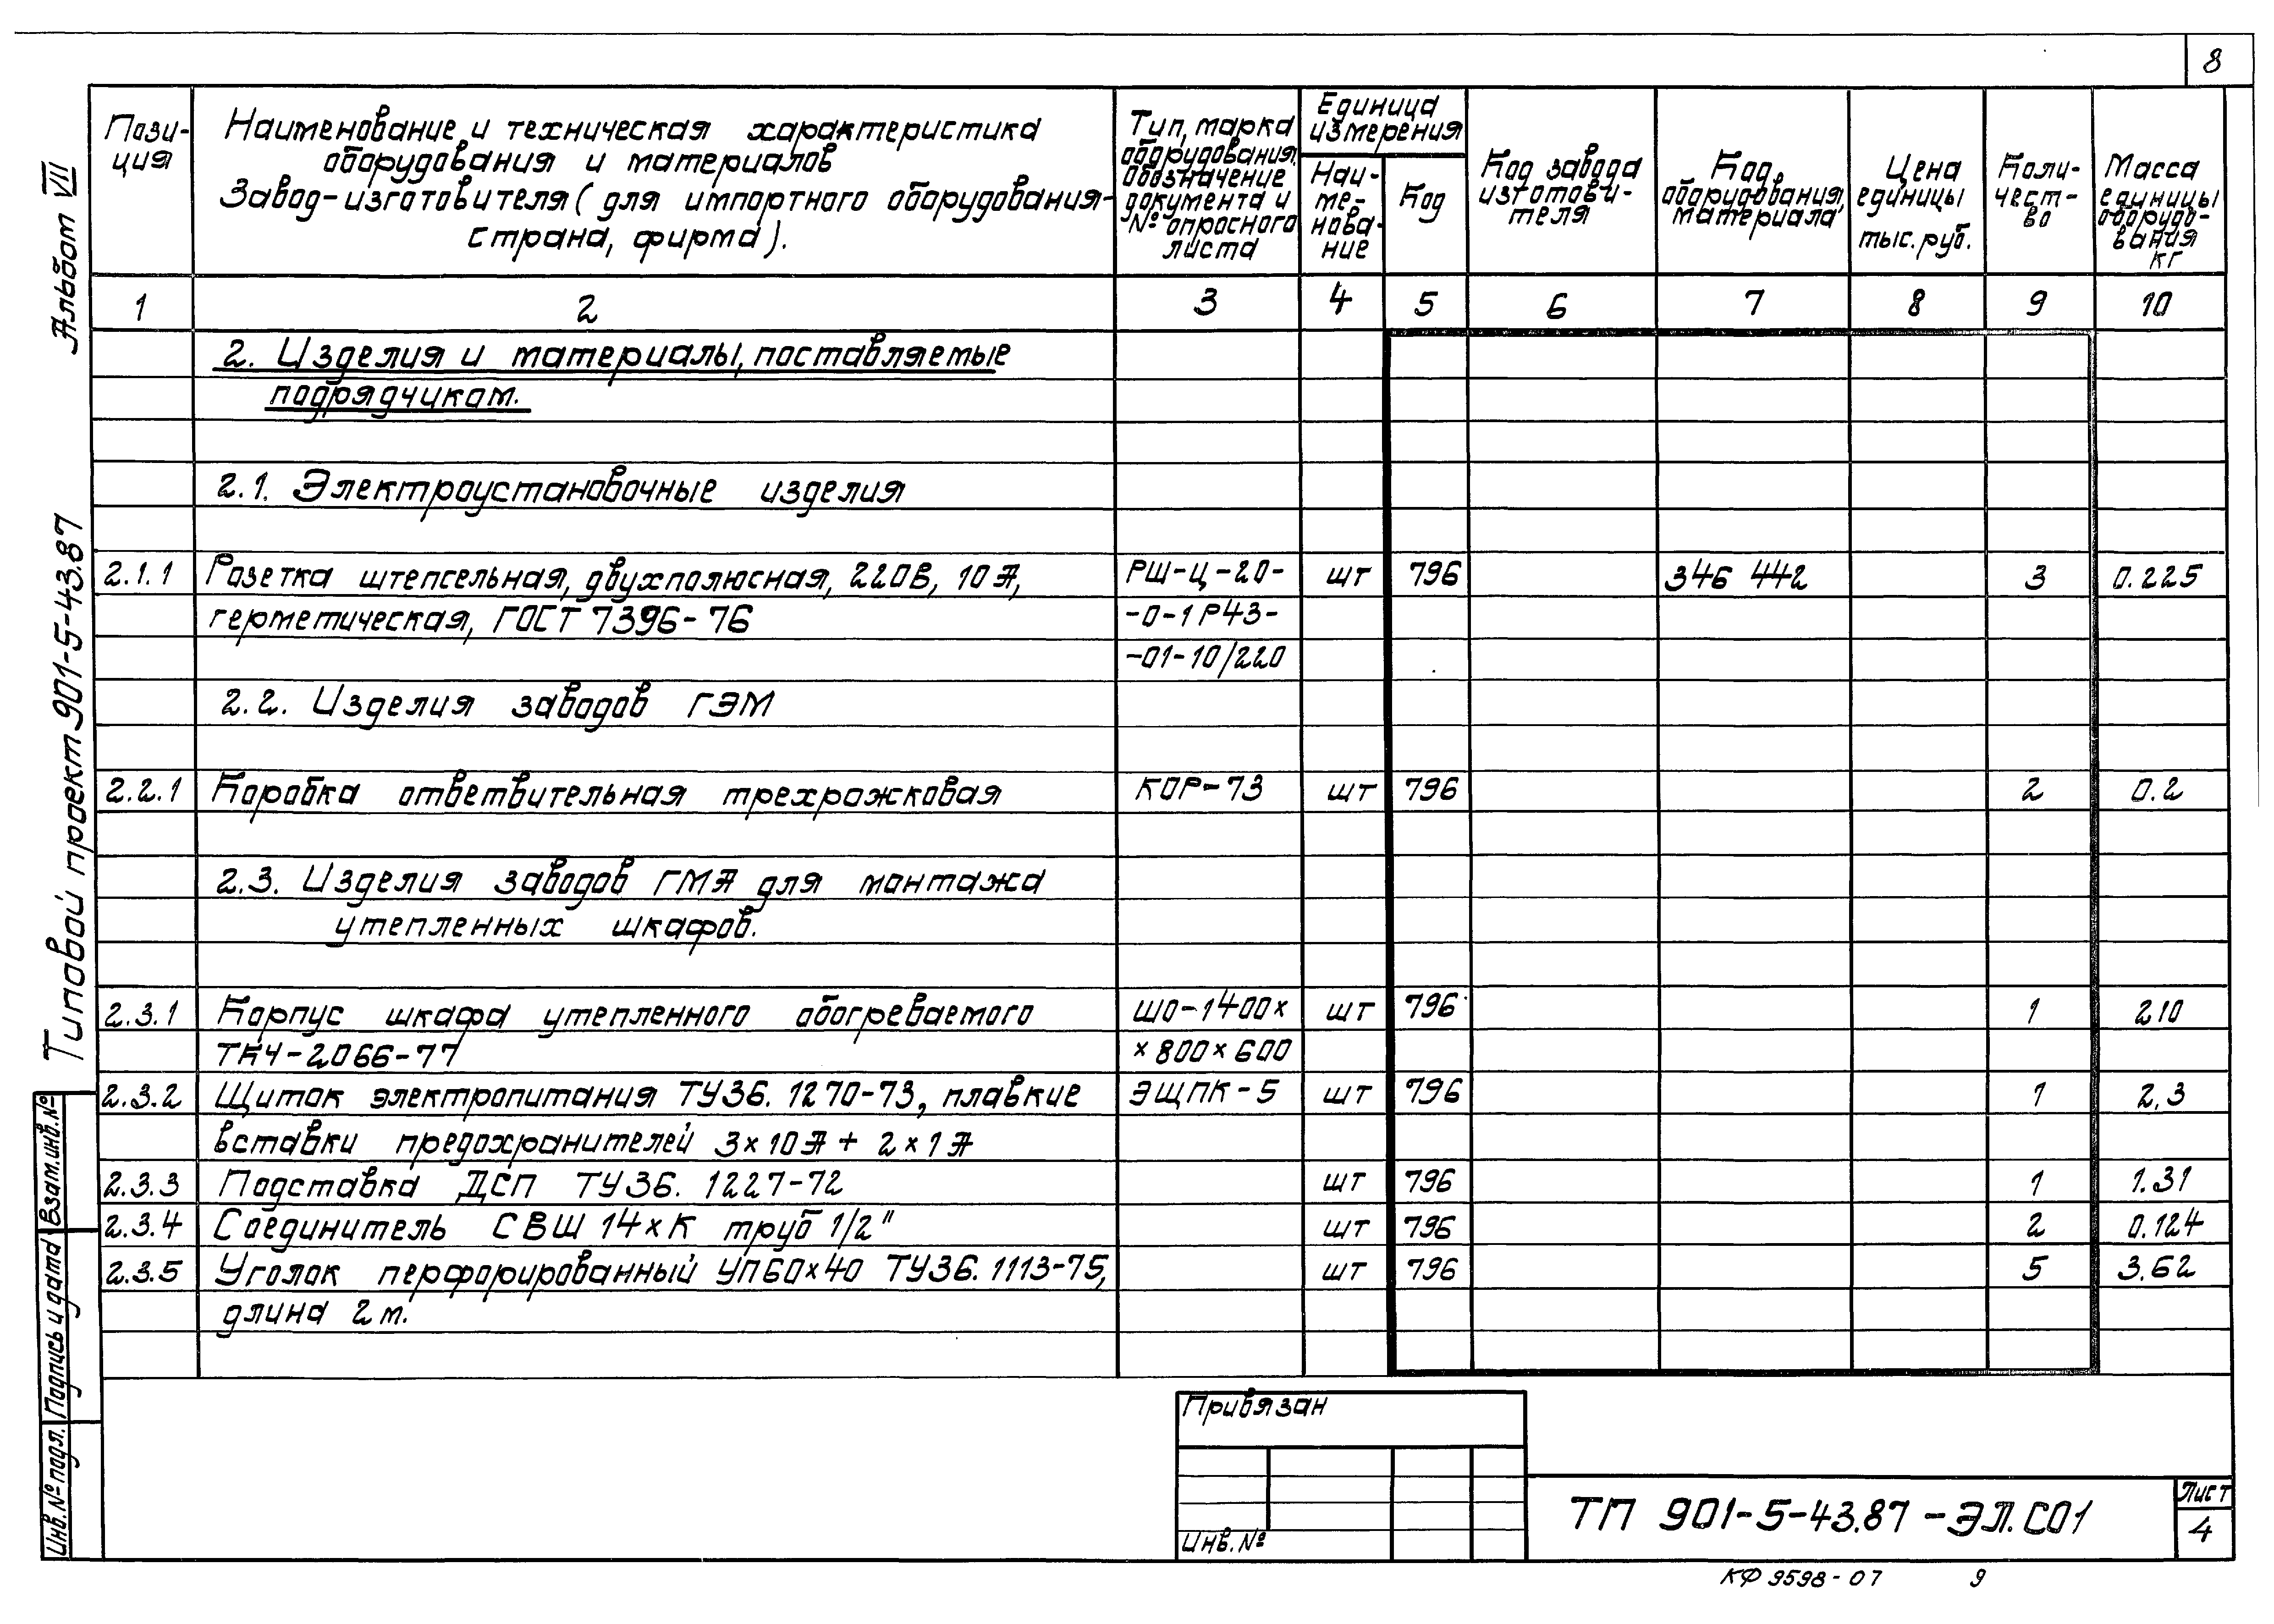 8
Альбом VII
Типовой проект 901-5-43.87
Взам.инв.№
Подпись и дата
Инв.№ подл.
Пози-
ция
Наименование и техническая характеристика
оборудования и материалов
Завод-изготовителя (для импортного оборудования-
страна, фирма).
Тип, марка
оборудования,
обозначение
документа и
№ опросного
листа
Единица
измерения
Наи-
ме-
нова-
ние
Код
Код завода
изготови-
теля
Код
оборудования,
материала
Цена
единицы
тыс. руб.
Коли-
чест-
во
Масса
единицы
оборудо-
вания
кг
1 2 3 4 5 6 7 8 9 10
2. Изделия и материалы, поставляемые
подрядчиком.
2.1. Электроустановочные изделия
2.1.1 Розетка штепсельная, двухполюсная, 220В, 10А, РШ-Ц-20- шт 796 346 442 3 0.225
герметическая, ГОСТ 7396-76 -0-1Р43-
-01-10/220
2.2. Изделия заводов ГЭМ
2.2.1 Коробка ответвительная трехрожковая КОР-73 шт 796 2 0.2
2.3. Изделия заводов ГМА для монтажа
утепленных шкафов.
2.3.1 Корпус шкафа утепленного обогреваемого ШО-1400х шт 796 1 210
ТК4-2066-77 х800х600
2.3.2 Щиток электропитания ТУ36. 1270-73, плавкие ЭЩПК-5 шт 796 1 2,3
вставки предохранителей 3х10А + 2х1А
2.3.3 Подставка ДСП ТУ36. 1227-72 шт 796 1 1.31
2.3.4 Соединитель СВШ 14хК труб 1/2" шт 796 2 0.124
2.3.5 Уголок перфорированный УП60х40 ТУ36. 1113-75, шт 796 5 3.62
длина 2м.
Привязан
Инв.№
ТП 901-5-43.87-ЭЛ.СО1
Лист
4
КФ 9598-07 9